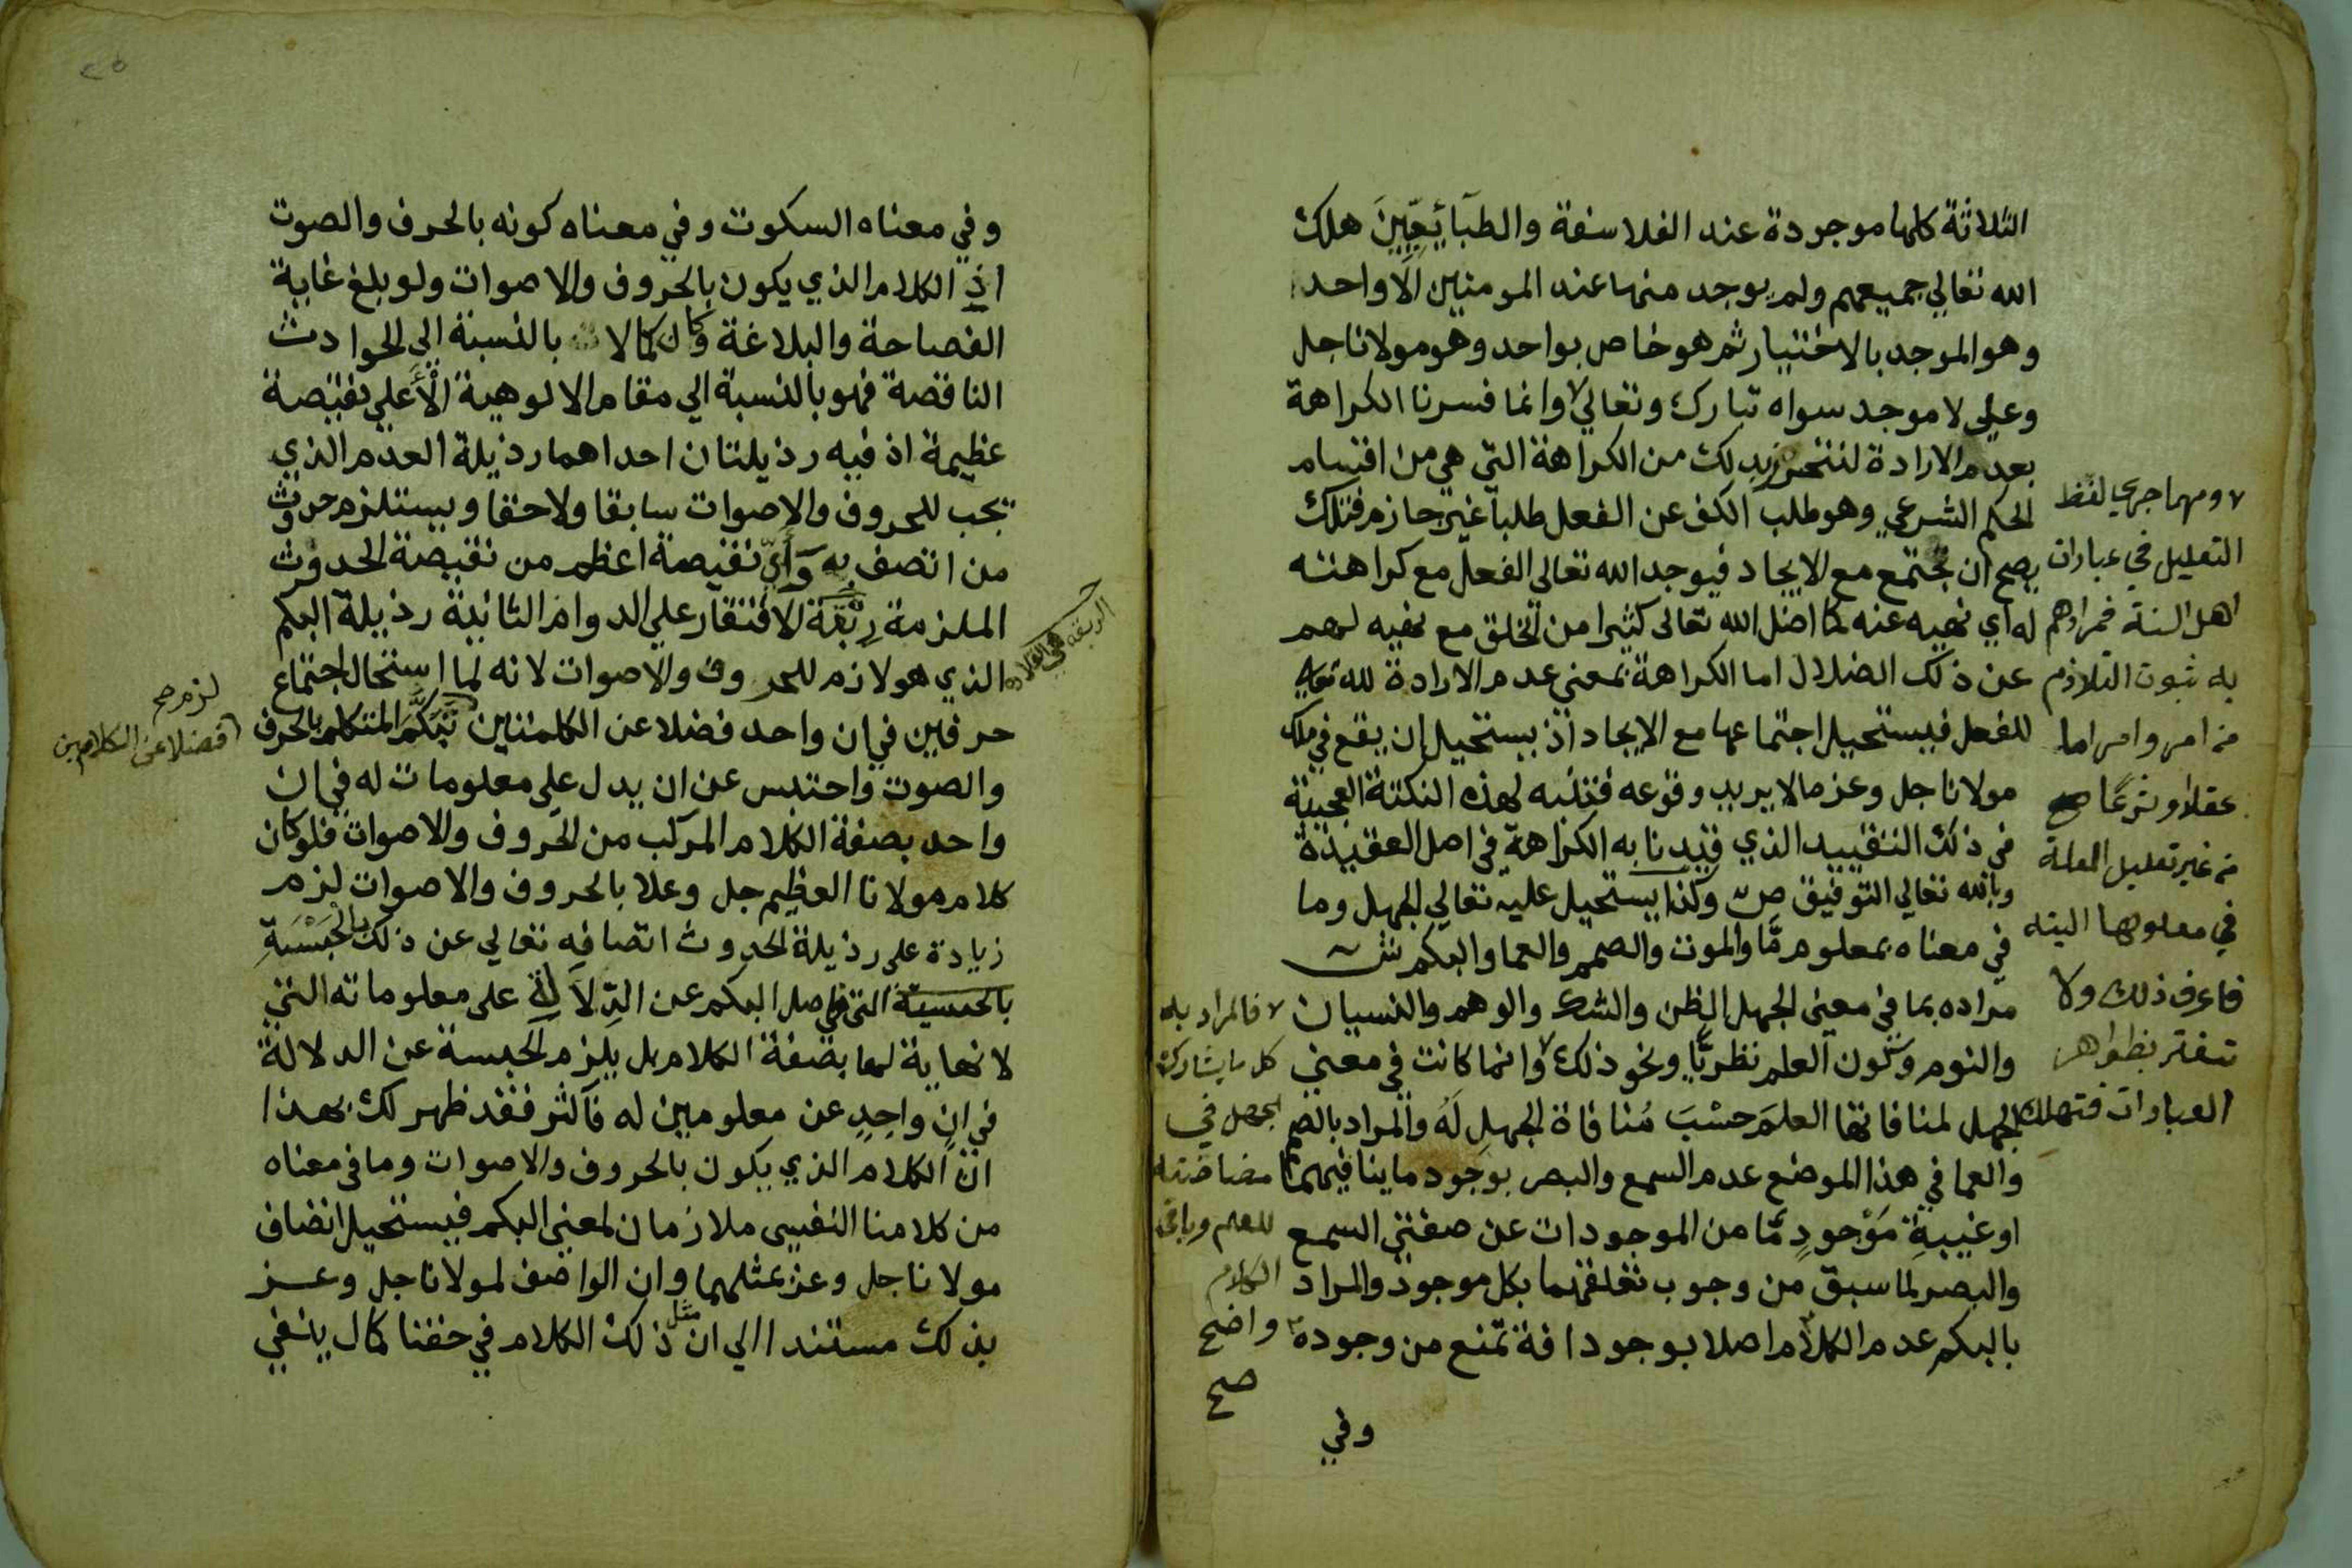 الثلاثة كلها موجودة عند الفلاسفة والطبَائِعيِّينَ هلك
الله تعالي جميعهم ولم يوجد منها عند المومنين الا واحد
وهو الموجد بالاختيار ثم هو خاص بواحد وهو مولانا جل
وعلى لا موجد سواه تبارك وتعالي وانما فسرنا الكراهة
بعدم الارادة لنتحرز بذلك من الكراهة التي هي من اقسام
الحكم الشرعي وهو طلب الكف عن الفعل طلبا غير جازم فتلك
يصح ان تجتمع مع الايجاد فيوجد الله تعالى الفعل مع كراهته
له اي نهيه عنه كما اضل الله تعالى كثيرا من الخلق مع نهيه لهم
عن ذلك الضلال اما الكراهة بمعني عدم الارادة لله تعالي
للفعل فيستحيل اجتماعها مع الايجاد اذ يستحيل ان يقع في ملك
مولانا جل وعز ما لا يريد وقوعه فتنبه لهذه النكتة العجيبة
في ذلك التقييد الذي قيدنا به الكراهة في اصل العقيدة
وبالله تعالي التوفيق ص وكذا يستحيل عليه تعالي الجهل وما
في معناه بمعلوم مَّا والموت والصمم والعما والبكم ش
مراده بما في معنى الجهل الظن والشك والوهم والنسيان
والنوم وكون العلم نظريًّا ونحو ذلك وانما كانت في معني
الجهل لمنافاتها العلمَ حسْبَ مُنافاة الجهلِ لَهُ والمراد بالصم
والعما في هذا الموضع عدم السمع والبصر بوجود ما ينافيهما
او غيبةِ مَوْجودٍ مَّا من الموجودات عن صفتي السمع
والبصر لما سبق من وجوب تعلقهما بكل موجود والمراد
بالبكم عدم الكلام اصلا بوجود افة تمنع من وجوده
وفي
ومهما جرى لفظ
التعليل في عبارات
اهل السنة فمرادهم
به ثبوت التلازم
من امر وامر اما
عقلا او شرعًا صح
من غير تعليل العلة
في معلولها البته
فاعرف ذلك ولا
تغتر بظواهر
العبارات فتهلك
فالمراد به
كل ما يشارك
الجهل في
مضادته
للعلم وباقي
الكلام
واضح
صح
وفي معناه السكوت وفي معناه كونه بالحرف والصوت
اذ الكلام الذي يكون بالحروف والاصوات ولو بلغ غاية
الفصاحة والبلاغة وكان كمالا بالنسبة الي الحوادث
الناقصة فهو بالنسبة الي مقام الالوهية الأَعلي نقيصة
عظيمة اذ فيه رذيلتان احداهما رذيلة العدم الذي
تجب للحروف والاصوات سابقا ولاحقا ويستلزم حدوث
من اتصف به وَأَيّ نقيصة اعظم من نقيصة الحدوث
الملزمة رِبْقَة الافتقار علي الدوام الثانية رذيلة البكم
الذي هو لازم للحروف والاصوات لانه لما استحال اجتماع
حرفين في ان واحد فضلا عن الكلمتين تَبَكَّمَ المتكلم بالحرف
والصوت واحتبس عن ان يدل على معلومات له في ان
واحد بصفة الكلام المركب من الحروف والاصوات فلو كان
كلام مولانا العظيم جل وعلا بالحروف والاصوات لزم
زيادة على رذيلة الحدوث اتصافه تعالي عن ذلك بالحُبْسَةِ
التي هي اصل البكم عن الدِلاَلة على معلوماته التي
لا نهاية لها بصفة الكلام بل يلزم الحبسة عن الدلالة
في انٍ واحِدٍ عن معلومين له فأكثر فقد ظهر لك بهذا
ان الكلام الذي يكون بالحروف والاصوات وما في معناه
من كلامنا النفيسى ملازمان لمعني البكم فيستحيل اتصاف
مولانا جل وعز بمثلهما وان الواصف لمولانا جل وعز
بذلك مستندا الي ان مثل ذلك الكلام في حقنا كمال ينفي
لزم صح
فضلا عن الكلامين